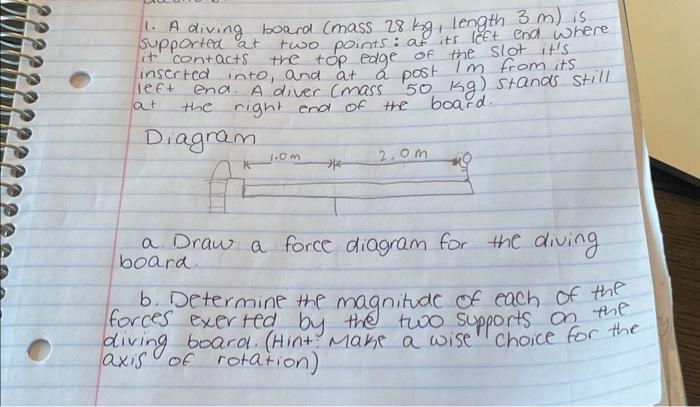 1. A diving board (mass 28 kg, length 3 m) is
supported at two points: at its left end where
it contacts the top edge of the slot it's
inserted into, and at a post 1m from its
left end. A diver (mass 50 kg) stands still
at the right end of the board.
Diagram
1.0m 2.0m
a. Draw a force diagram for the diving
board.
b. Determine the magnitude of each of the
forces exerted by the two supports on the
diving board. (Hint: Make a wise choice for the
axis of rotation)